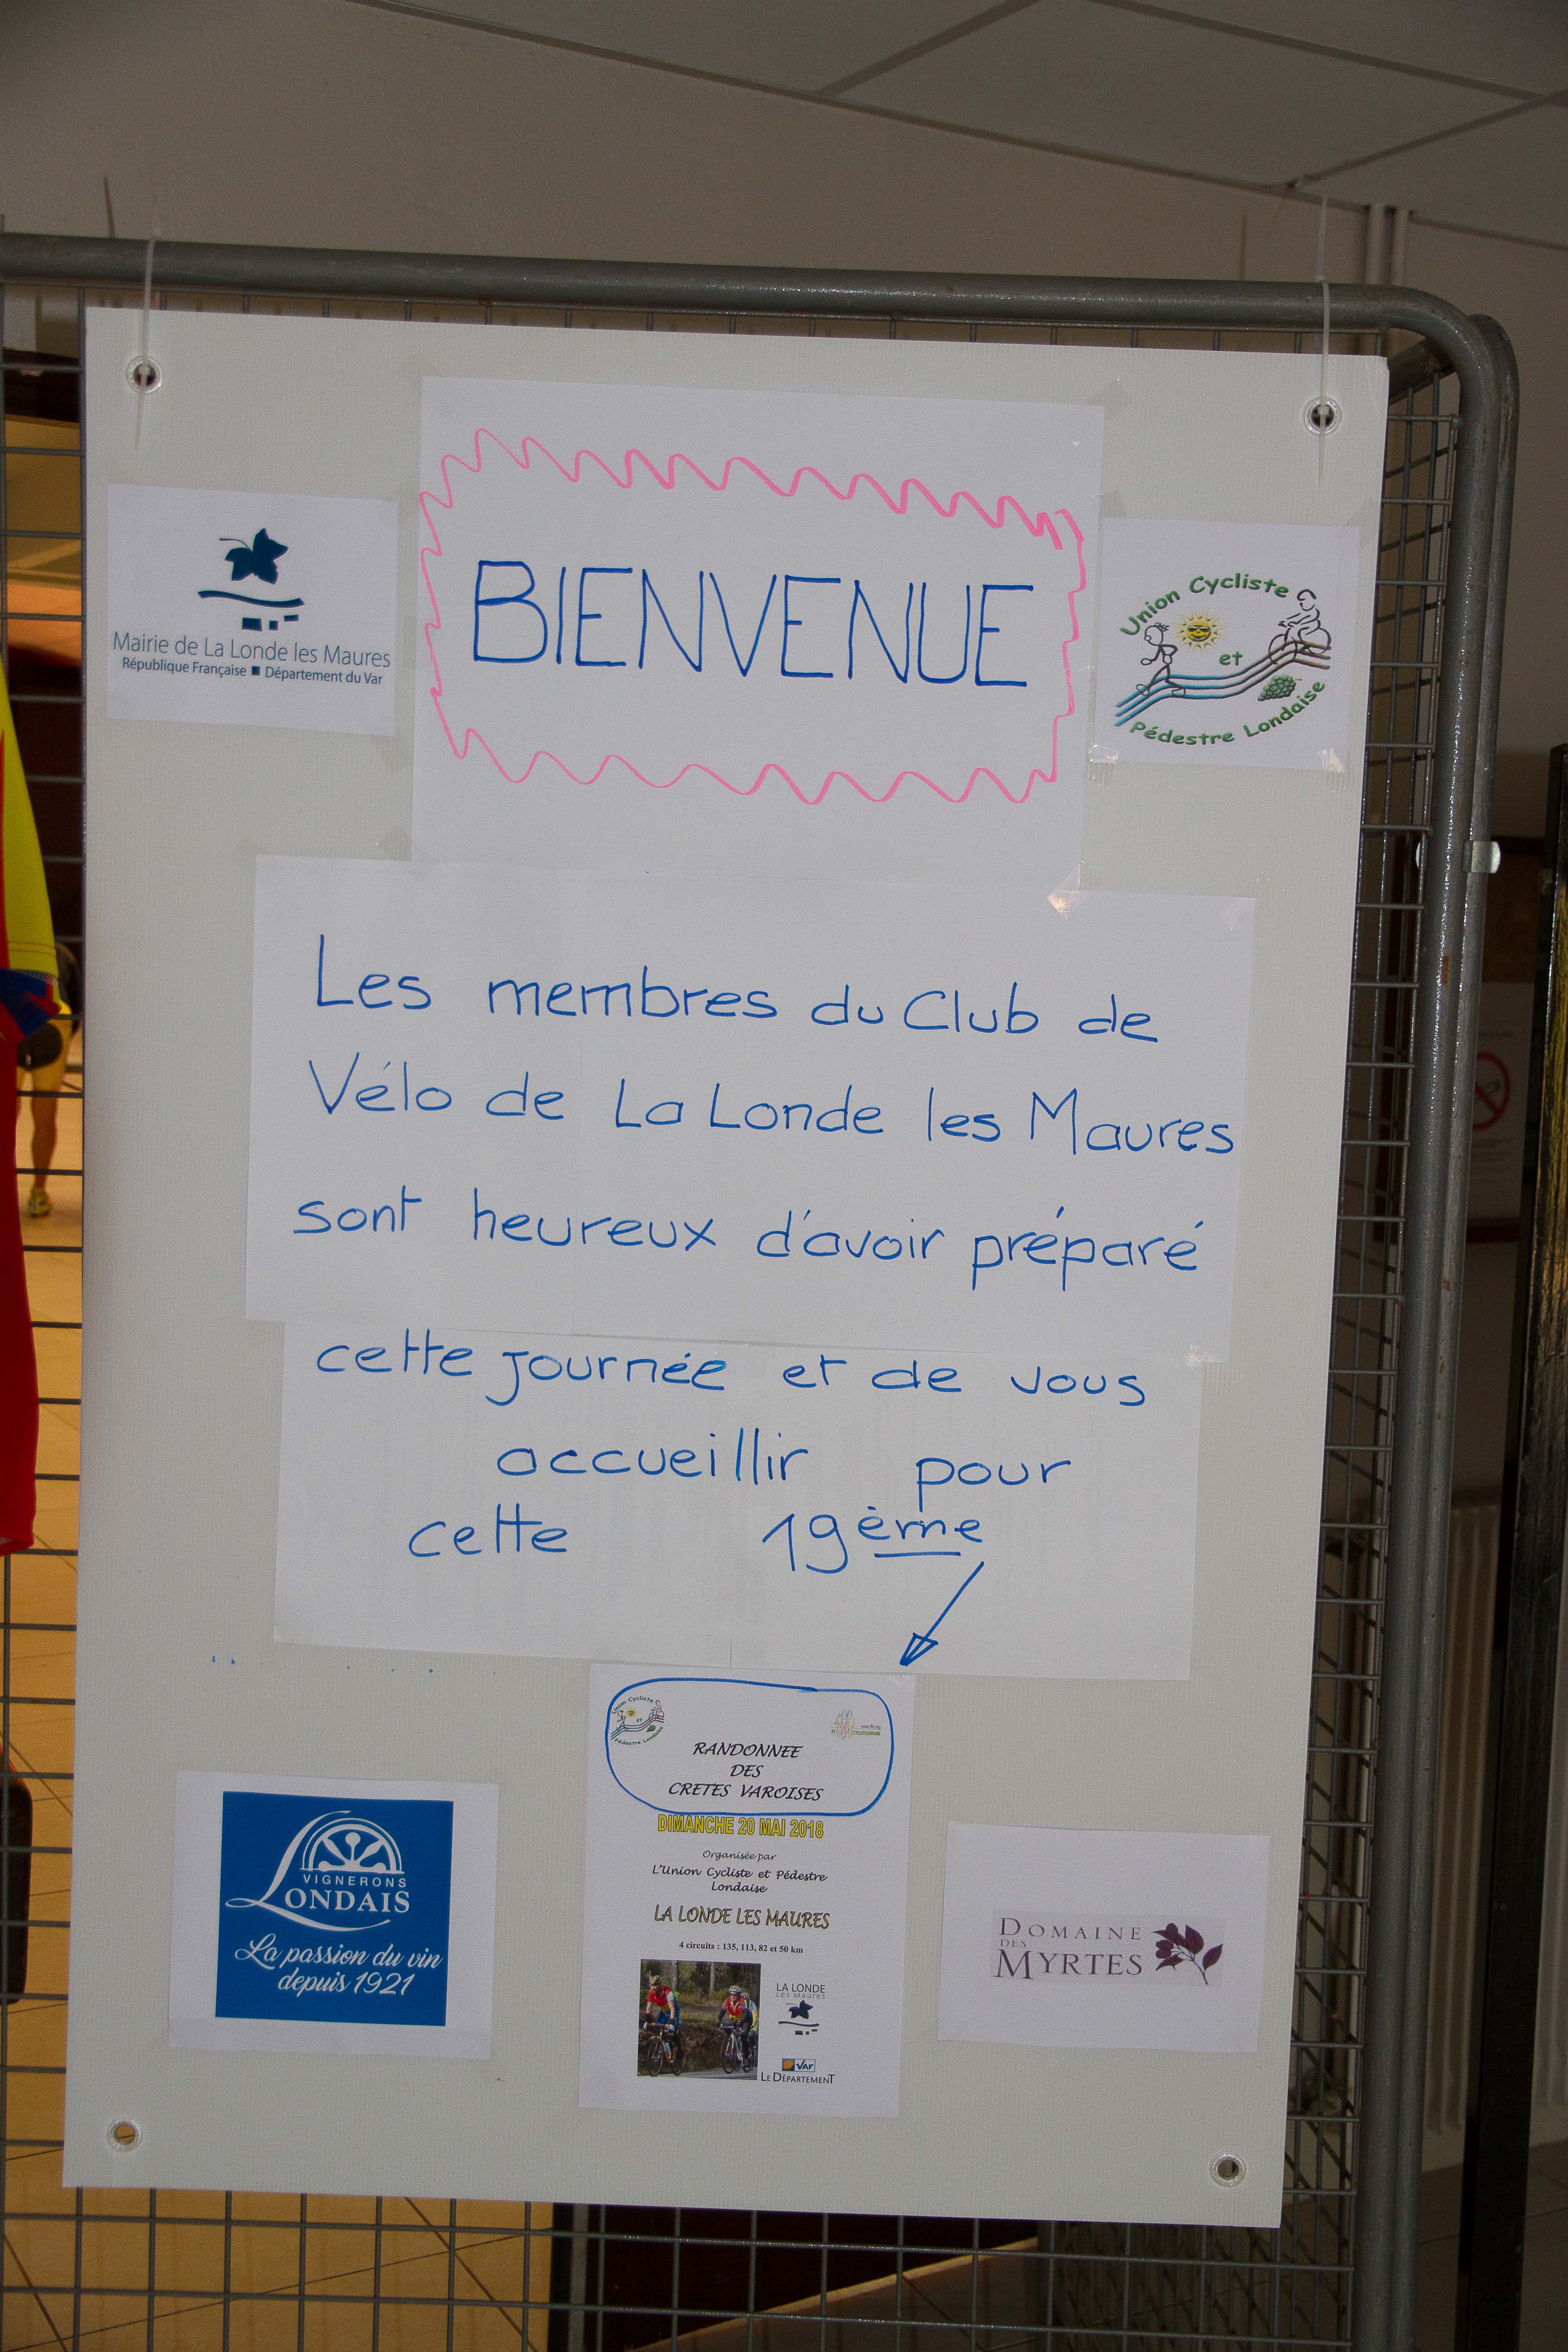 BIENVENUE
Mairie de La Londe les Maures
République Française ■ Département du Var
Union Cycliste
et
Pédestre Londaise
Les membres du Club de
Vélo de La Londe les Maures
sont heureux d'avoir préparé
cette journée et de vous
accueillir pour
cette 19ème
Union Cycliste
et
Pédestre Londaise
RANDONNEE
DES
CRETES VAROISES
DIMANCHE 20 MAI 2018
Organisée par
L'Union Cycliste et Pédestre
Londaise
LA LONDE LES MAURES
4 circuits : 135, 113, 82 et 50 km
LA LONDE
Les Maures
VAR
LE DÉPARTEMENT
VIGNERONS
LONDAIS
La passion du vin
depuis 1921
DOMAINE
DES
MYRTES